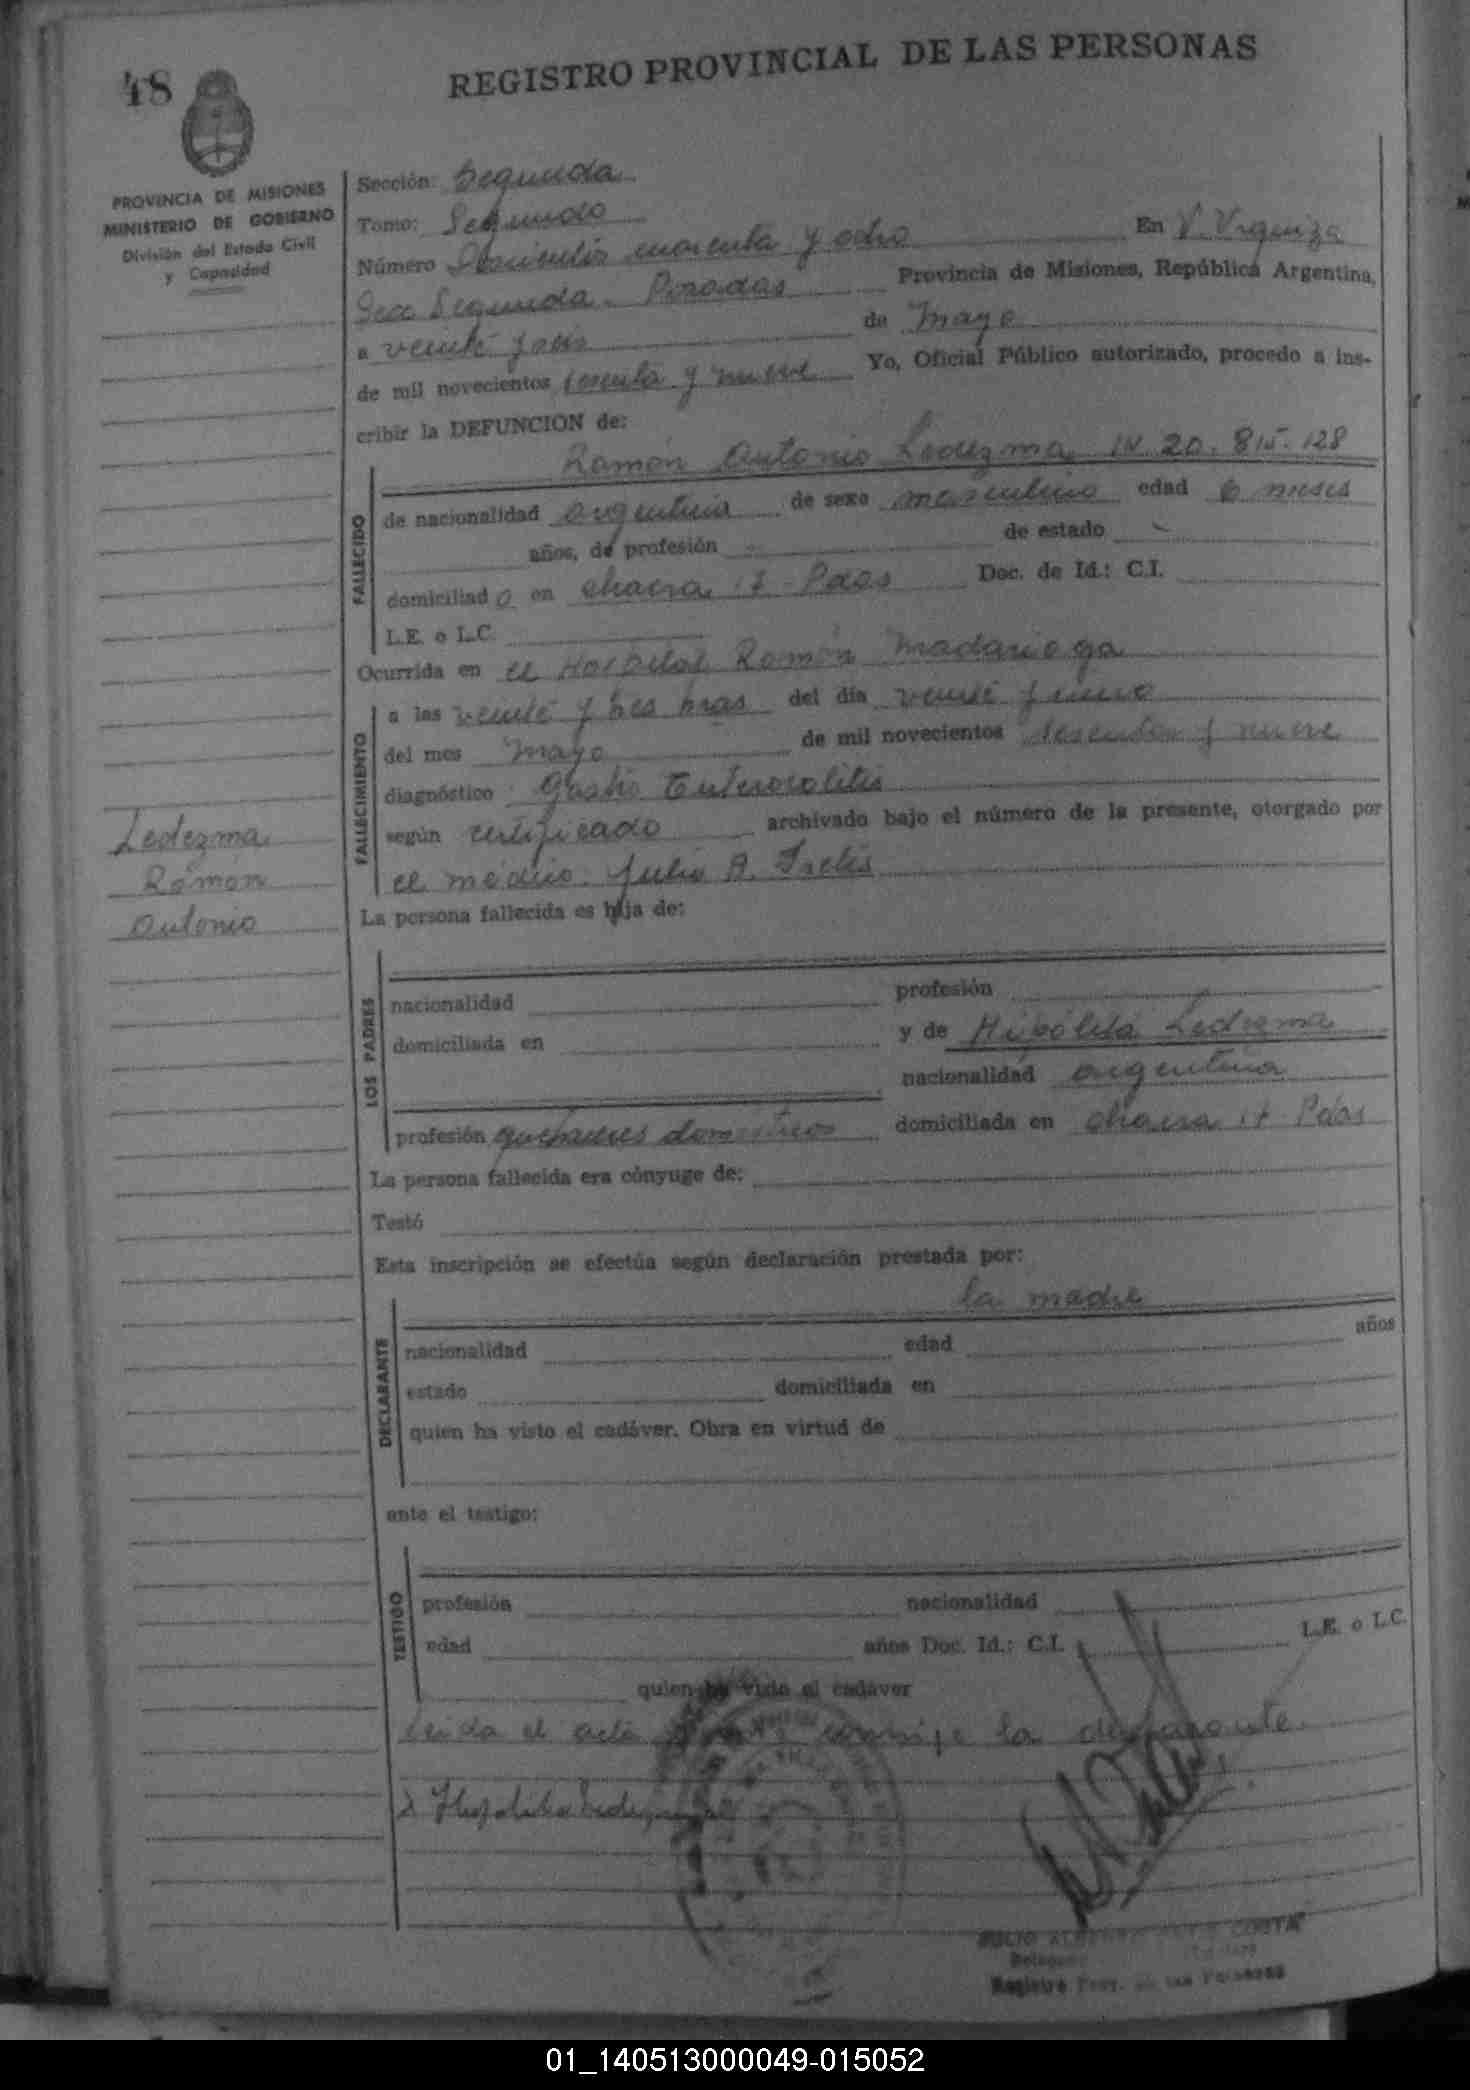 48
REGISTRO PROVINCIAL DE LAS PERSONAS
PROVINCIA DE MISIONES
MINISTERIO DE GOBIERNO
División del Estado Civil
y Capacidad
Sección: Segunda
Tomo: Segundo
Número cuarenta y ocho En V. Urquiza
Secc Segunda. Posadas Provincia de Misiones, República Argentina,
a veinte y de Mayo
de mil novecientos sesenta y nueve Yo, Oficial Público autorizado, procedo a ins-
cribir la DEFUNCION de:
Ramón Antonio Ledezma IN. 20. 815. 128
FALLECIDO
de nacionalidad argentina de sexo masculino edad 6 meses
años, de profesión de estado
domiciliado en chacra 17 Pdas Doc. de Id.: C.I.
L.E. o L.C.
Ocurrida en el Hospital Ramón Madariaga
FALLECIMIENTO
a las veinte y tres hras del día veinte y
del mes Mayo de mil novecientos sesenta y nueve
diagnóstico Gastro Enterocolitis
según certificado archivado bajo el número de la presente, otorgado por
el médico Julio A.
Ledezma
Ramón
Antonio
La persona fallecida es hija de:
LOS PADRES
nacionalidad profesión
domiciliada en y de Hipólita Ledezma
nacionalidad argentina
profesión quehaceres domésticos domiciliada en chacra 17 Pdas
La persona fallecida era cónyuge de:
Testó
Esta inscripción se efectúa según declaración prestada por:
la madre
DECLARANTE
nacionalidad edad años
estado domiciliada en
quien ha visto el cadáver. Obra en virtud de
ante el testigo:
TESTIGO
profesión nacionalidad
edad años Doc. Id.: C.I. L.E. o L.C.
quien ha visto el cadáver
Leida el acta la declarante
Hipolita Ledezma
JULIO COSTA
Registro Prov. de las Personas
01_140513000049-015052